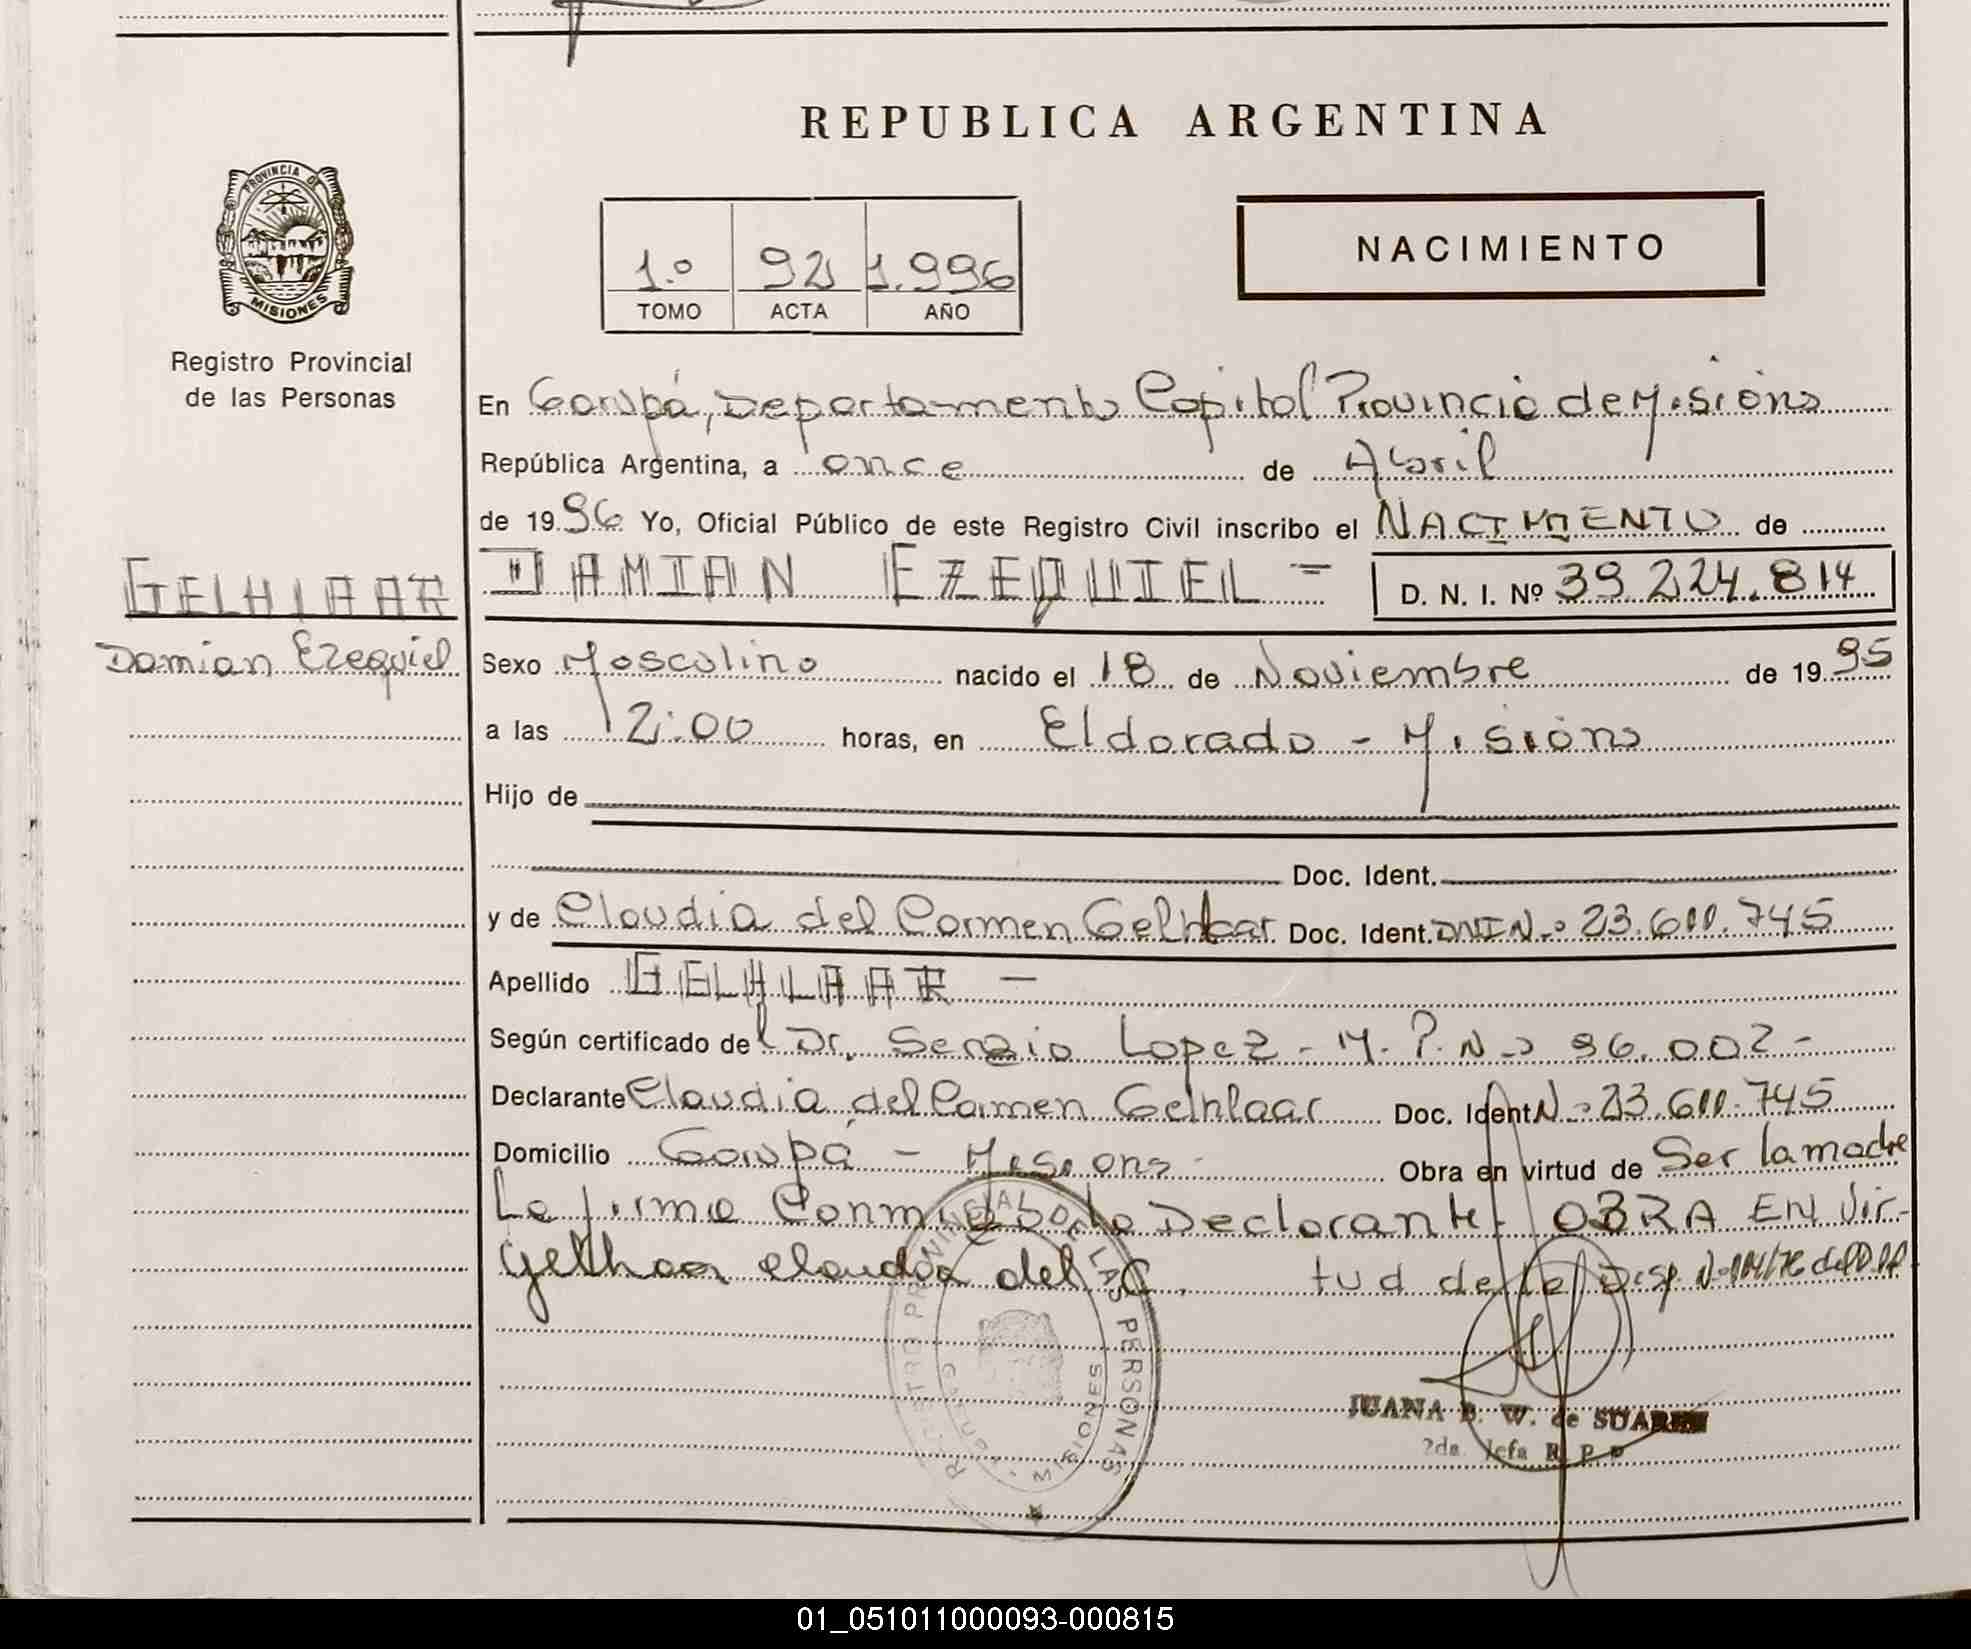 REPUBLICA ARGENTINA
PROVINCIA DE
MISIONES
Registro Provincial
de las Personas
1.º 92 1.996
TOMO ACTA AÑO
NACIMIENTO
En Garupá, Departamento Capital Provincia de Misiones
República Argentina, a once de Abril
de 1996 Yo, Oficial Público de este Registro Civil inscribo el NACIMIENTO de
GELHLAAR
Damian Ezequiel
DAMIAN EZEQUIEL = D. N. I. Nº 39.224.814
Sexo Masculino nacido el 18 de Noviembre de 1995
a las 12:00 horas, en Eldorado - Misiones
Hijo de
Doc. Ident.
y de Claudia del Carmen Gelhlaar Doc. Ident. DNI Nº 23.600.745
Apellido GELHLAAR -
Según certificado del Dr. Sergio Lopez - M. P. Nº 96.002 -
Declarante Claudia del Carmen Gelhlaar Doc. Ident Nº 23.600.745
Domicilio Garupá - Misiones - Obra en virtud de Ser la madre
La firma Conmigo la Declarante. OBRA EN Vir-
Gelhaar claudia del C. tud de la Disp. Nº 104/76 del
REGISTRO PROVINCIAL DE LAS PERSONAS
MISIONES
JUANA B. W. de SUAREZ
2da. Jefa R. P. P
01_051011000093-000815